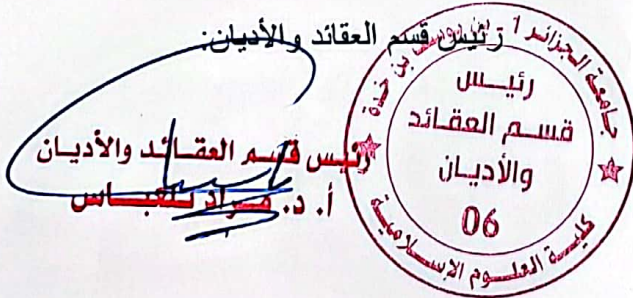 رئيس قسم العقائد والأديان:
رئيس قسم العقائد والأديان
أ. د. مراد بلعباس
جامعة الجزائر 1 بن يوسف بن خدة
رئيس
قسم العقائد
والأديان
06
كلية العلوم الإسلامية